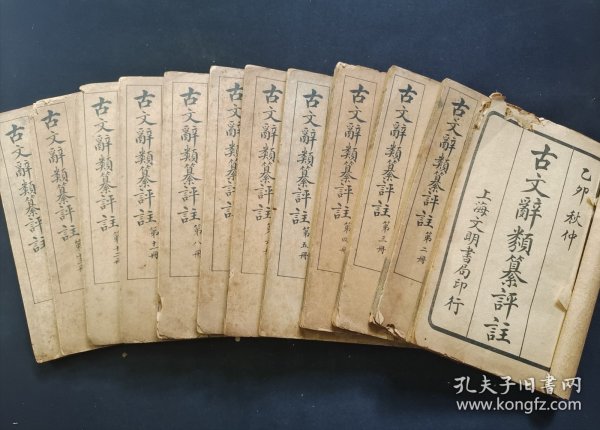 乙卯秋仲
古文辭類纂評註
上海文明書局印行
古文辭類纂評註 第二冊
古文辭類纂評註 第三冊
古文辭類纂評註 第四冊
古文辭類纂評註 第五冊
古文辭類纂評註
古文辭類纂評註
古文辭類纂評註 第八冊
古文辭類纂評註 第十一冊
古文辭類纂評註 第十二冊
古文辭類纂評註
古文辭類纂評註
孔夫子旧书网
www.kongfz.com